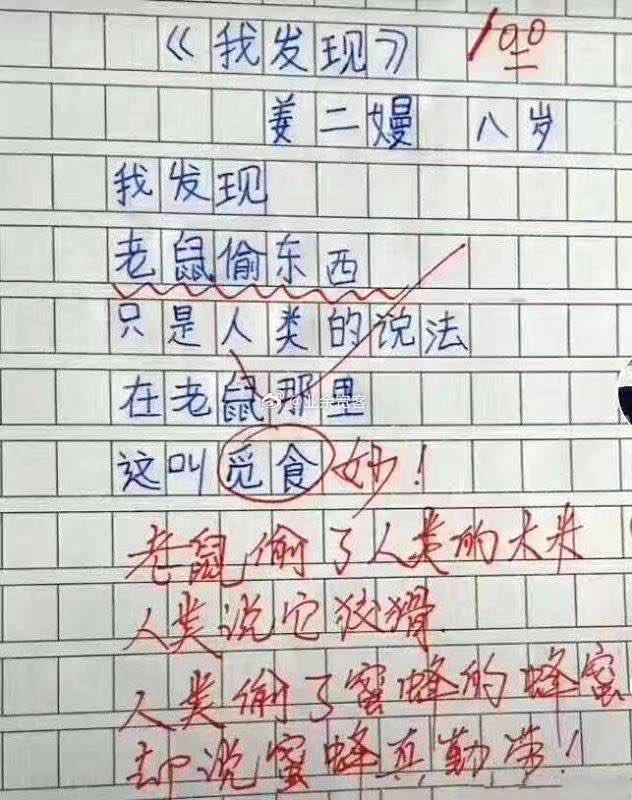 《我发现》 100
姜二嫚 八岁
我发现
老鼠偷东西
只是人类的说法
在老鼠那里
@业余觅客
这叫觅食 妙!
老鼠偷了人类的大米
人类说它狡猾
人类偷了蜜蜂的蜂蜜
却说蜜蜂真勤劳!